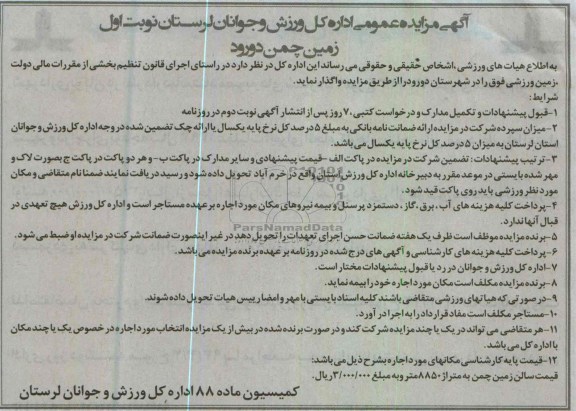 آگهی مزایده عمومی اداره کل ورزش و جوانان لرستان نوبت اول
زمین چمن دورود
به اطلاع هیات های ورزشی، اشخاص حقیقی و حقوقی می رساند این اداره کل در نظر دارد در راستای اجرای قانون تنظیم بخشی از مقررات مالی دولت
،زمین ورزشی فوق را در شهرستان دورود را از طریق مزایده واگذار نماید.
شرایط:
۱-قبول پیشنهادات و تکمیل مدارک و درخواست کتبی، ۷ روز پس از انتشار آگهی نوبت دوم در روزنامه
۲-میزان سپرده شرکت در مزایده ارائه ضمانت نامه بانکی به مبلغ ۵ درصد کل نرخ پایه یکسال یا ارائه چک تضمین شده در وجه اداره کل ورزش و جوانان
استان لرستان به میزان ۵ درصد کل نرخ پایه یکسال می باشد.
۳-ترتیب پیشنهادات: تضمین شرکت در مزایده در پاکت الف -قیمت پیشنهادی و سایر مدارک در پاکت ب- و هر دو پاکت در پاکت ج بصورت لاک و
مهر شده بایستی در موعد مقرر به دبیرخانه اداره کل ورزش استان واقع در خرم آباد تحویل داده شود و رسید دریافت نمایند ضمنا نام متقاضی و مکان
مورد نظر ورزشی باید روی پاکت قید شود.
۴-پرداخت کلیه هزینه های آب، برق، گاز، دستمزد پرسنل و بیمه نیروهای مکان مورد اجاره بر عهده مستاجر است و اداره کل ورزش هیچ تعهدی در
قبال آنها ندارد.
۵-برنده مزایده موظف است ظرف یک هفته ضمانت حسن اجرای تعهدات را تحویل دهد در غیر اینصورت ضمانت شرکت در مزایده او ضبط می شود.
۶-پرداخت کلیه هزینه های کارشناسی و آگهی های درج شده در روزنامه بر عهده برنده مزایده می باشد.
۷-اداره کل ورزش و جوانان در رد یا قبول پیشنهادات مختار است.
۸-برنده مزایده مکلف است مکان مورد اجاره خود را بیمه نماید.
۹-در صورتی که هیاتهای ورزشی متقاضی باشند کلیه اسناد بایستی با مهر و امضا رییس هیات تحویل داده شوند.
۱۰-مستاجر مکلف است مفاد قرارداد را به اجرا در آورد.
۱۱-هر متقاضی می تواند در یک یا چند مزایده شرکت کند و در صورت برنده شده در بیش از یک مزایده انتخاب مورد اجاره در خصوص یک یا چند مکان
با اداره کل می باشد.
۱۲-قیمت پایه کارشناسی مکانهای مورد اجاره بشرح ذیل می باشد:
قیمت سالن زمین چمن به متراژ ۸۸۵۰ متر و به مبلغ ۳/۰۰۰/۰۰۰ ریال.
کمیسیون ماده ۸۸ اداره کل ورزش و جوانان لرستان
ParsNamadData